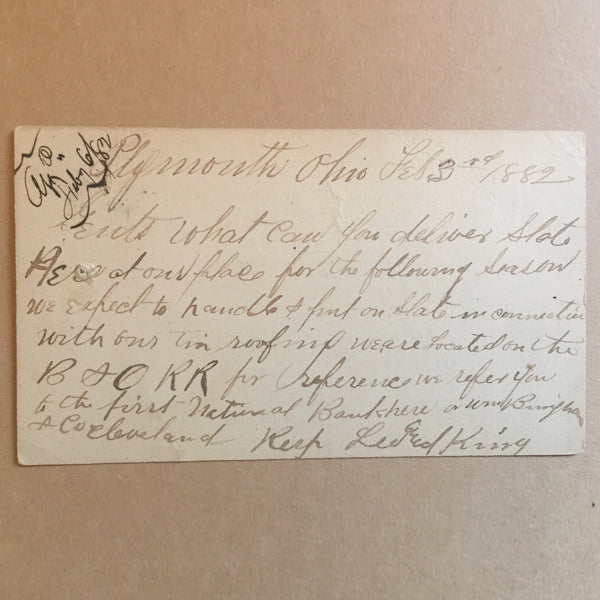 Feby 6/82
Plymouth Ohio Feb 3rd 1882
Gents what can you deliver Slate
Here at our place for the following Season
we expect to handle & put on Slate in connection
with our tin roofing we are located on the
B & O RR for reference we refer you
to the first National Bank here or Wm Bingham
& Co Cleveland Resp King